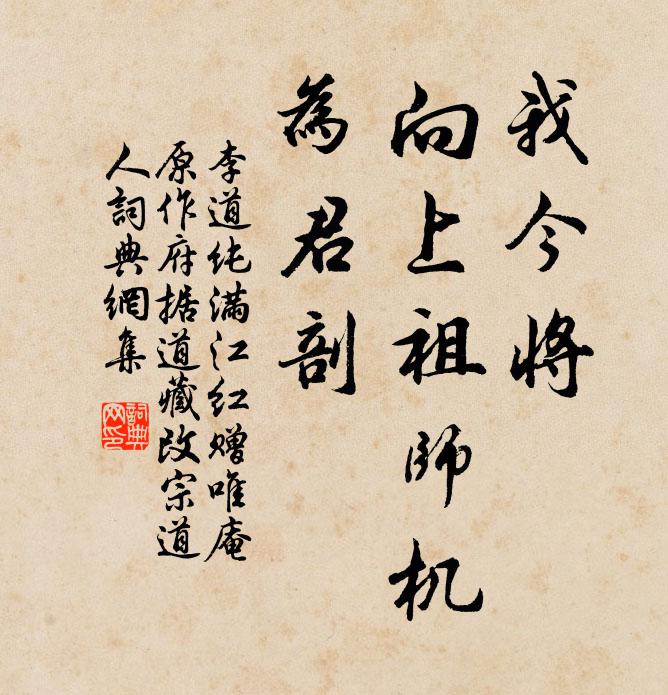 我今将
向上祖師机
為君剖
李道纯满江红赠唯庵
原作府据道藏改宗道
人詞典網集
詞典网印